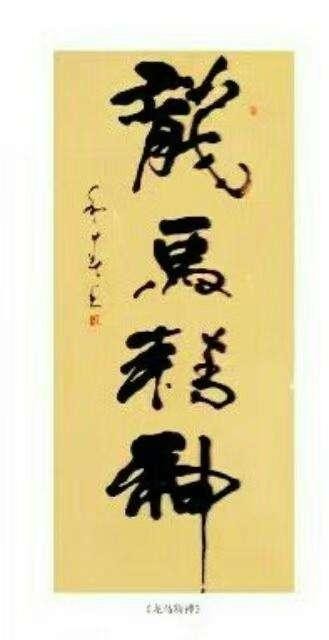 龍馬精神
《龙马精神》